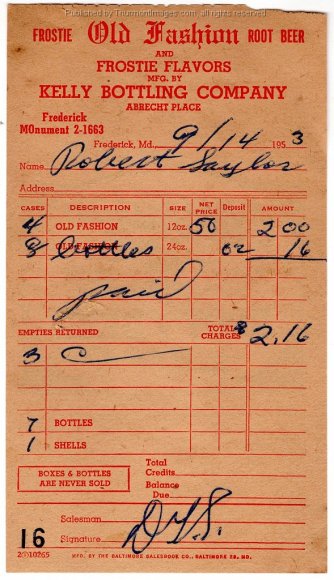 Published by ThurmontImages.com, all rights reserved
FROSTIE Old Fashion ROOT BEER
AND
FROSTIE FLAVORS
MFG. BY
KELLY BOTTLING COMPANY
ABRECHT PLACE
Frederick
MOnument 2-1663
Frederick, Md., 9/14 1953
Name Robert Saylor
Address
CASES DESCRIPTION SIZE NET PRICE Deposit AMOUNT
4 OLD FASHION 12oz. 50 2 00
8 OLD FASHION bottles 24oz. 02 16
paid
EMPTIES RETURNED TOTAL CHARGES $2.16
3 C
7 BOTTLES
1 SHELLS
Total Credits
BOXES & BOTTLES ARE NEVER SOLD
Balance Due
Salesman
16 Signature
MFG. BY THE BALTIMORE SALESBOOK CO., BALTIMORE 20, MD.